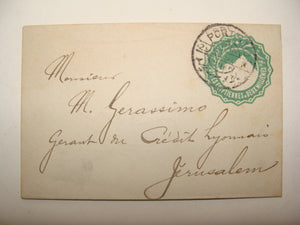 PORT
Monsieur
M. Gerassimo
Gerant du Crédit Lyonnais
Jérusalem